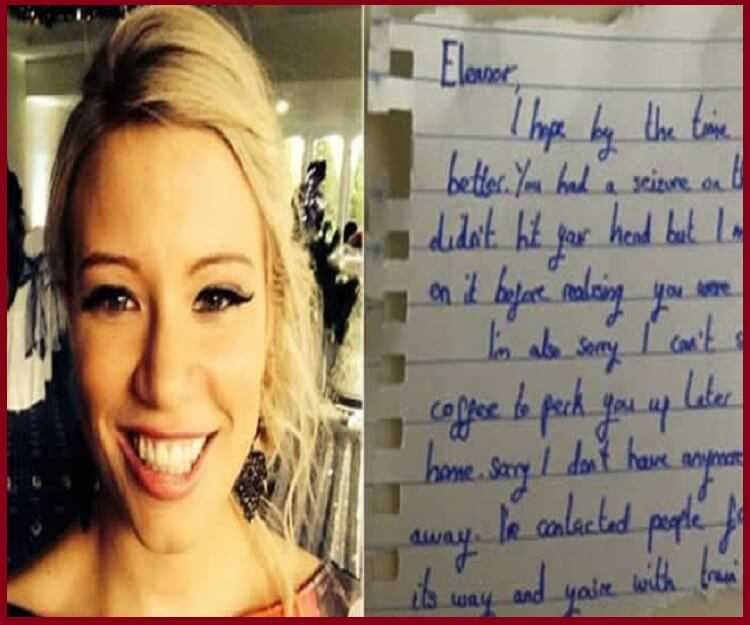 Eleanor,
I hope by the time
better. You had a seizure on t
didn't hit your head but I m
on it before realising you were
I'm also sorry I can't s
coffee to perk you up later
home. Sorry I don't have anymore
away. I've contacted people f
its way and you're with train